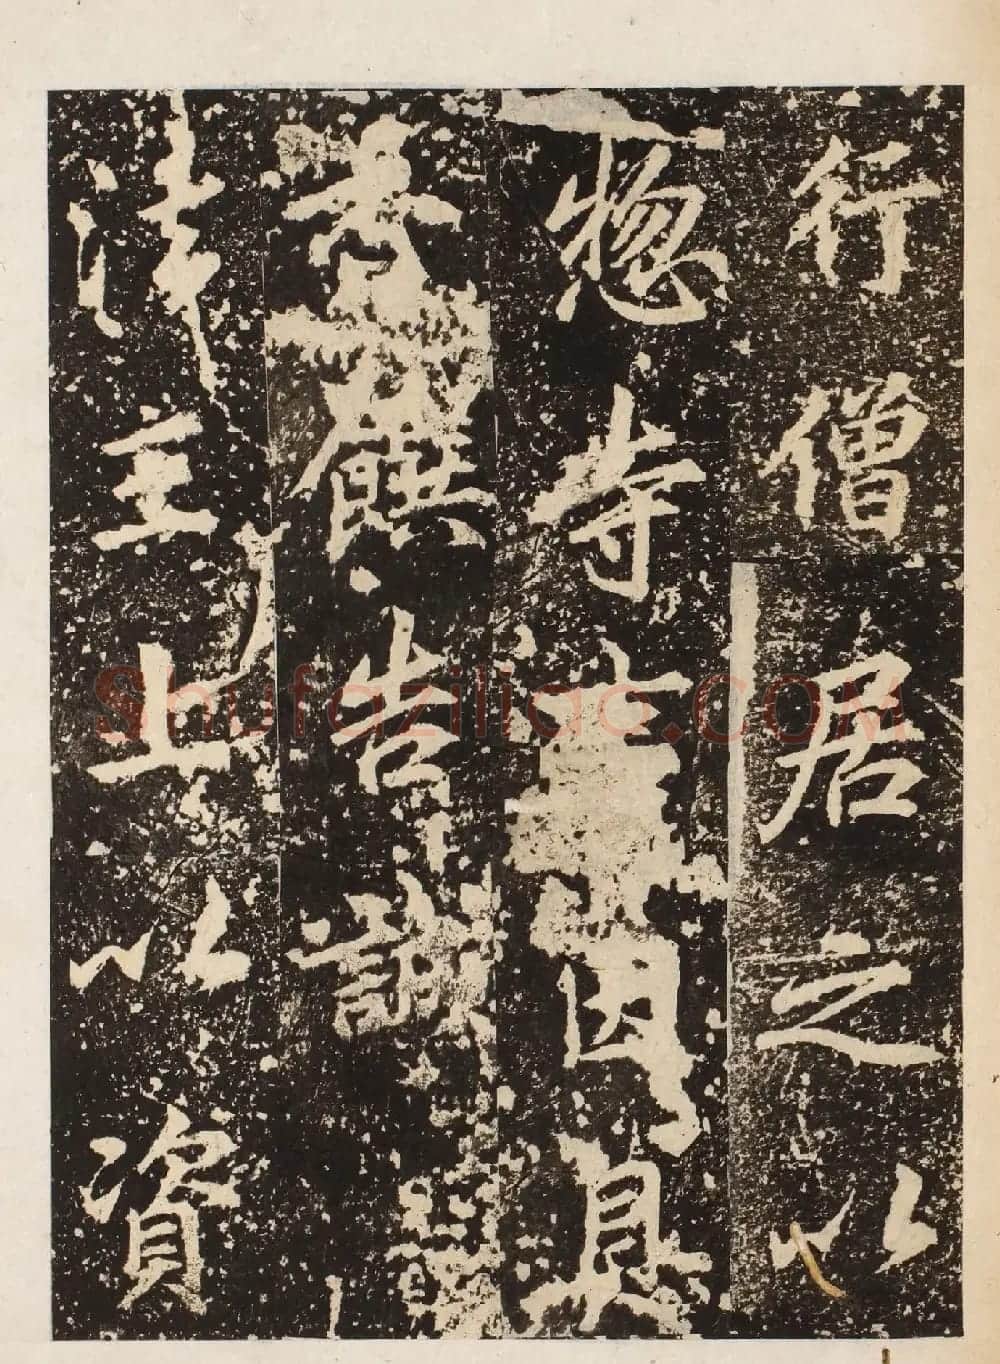 行僧居之以
惣寺 因具
表饌告謝
法主上以資
Shufaziliao.COM